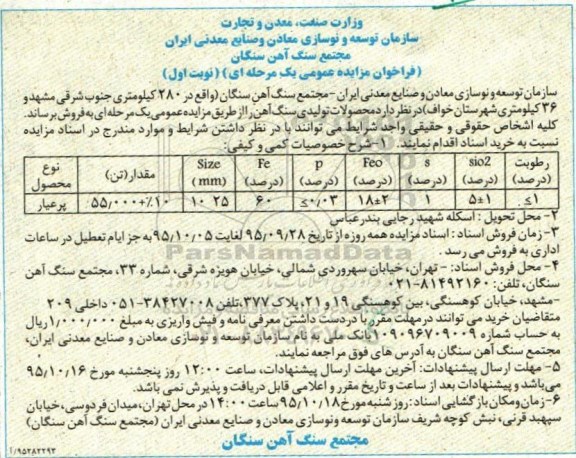 وزارت صنعت، معدن و تجارت
سازمان توسعه و نوسازی معادن وصنایع معدنی ایران
مجتمع سنگ آهن سنگان
(فراخوان مزایده عمومی یک مرحله ای) (نوبت اول)
سازمان توسعه و نوسازی معادن و صنایع معدنی ایران-مجتمع سنگ آهن سنگان (واقع در ۲۸۰ کیلومتری جنوب شرقی مشهد و
۳۶ کیلومتری شهرستان خواف)در نظر دارد محصولات تولیدی سنگ آهن را از طریق مزایده عمومی یک مرحله ای به فروش برساند.
کلیه اشخاص حقوقی و حقیقی واجد شرایط می توانند با در نظر داشتن شرایط و موارد مندرج در اسناد مزایده
نسبت به خرید اسناد اقدام نمایند. ۱-شرح خصوصیات کمی و کیفی:
نوع محصول مقدار(تن) Size (mm) Fe (درصد) p (درصد) Feo (درصد) s (درصد) sio2 (درصد) رطوبت (درصد)
پرعیار ۵۵,۰۰۰+٪۱۰ ۱۰ ۲۵ ۶۰ ≤۰/۰۳ ۱۸±۲ ۱ ۵±۱ ≤۱
۲- محل تحویل : اسکله شهید رجایی بندرعباس
۳- زمان فروش اسناد : اسناد مزایده همه روزه از تاریخ ۹۵/۰۹/۲۸ لغایت ۹۵/۱۰/۰۵ به جز ایام تعطیل در ساعات
اداری به فروش می رسد .
۴- محل فروش اسناد: - تهران، خیابان سهروردی شمالی، خیابان هویزه شرقی، شماره ۳۳، مجتمع سنگ آهن
سنگان، تلفن: ۸۱۴۹۲۱۶۰-۰۲۱
-مشهد، خیابان کوهسنگی، بین کوهسنگی ۱۹ و ۲۱، پلاک ۳۷۷، تلفن ۳۸۴۲۷۰۰۸-۰۵۱ داخلی ۲۰۹
متقاضیان خرید می توانند در مهلت مقرر با دردست داشتن معرفی نامه و فیش واریزی به مبلغ ۱/۰۰۰/۰۰۰ ریال
به حساب شماره ۰۱۰۹۰۹۶۷۰۹۰۰۹ بانک ملی به نام سازمان توسعه و نوسازی معادن و صنایع معدنی ایران،
مجتمع سنگ آهن سنگان به آدرس های فوق مراجعه نمایند.
۵- مهلت ارسال پیشنهادات: آخرین مهلت ارسال پیشنهادات، ساعت ۱۲:۰۰ روز پنجشنبه مورخ ۹۵/۱۰/۱۶
می باشد و پیشنهادات بعد از ساعت و تاریخ مقرر و اعلامی قابل دریافت و پذیرش نمی باشد.
۶- زمان و مکان بازگشایی اسناد: روز شنبه مورخ ۹۵/۱۰/۱۸ ساعت ۱۴:۰۰ در محل تهران، میدان فردوسی، خیابان
سپهبد قرنی، نبش کوچه شریف سازمان توسعه ونوسازی معادن و صنایع معدنی ایران (مجتمع سنگ آهن سنگان)
مجتمع سنگ آهن سنگان
۹۵۲۸۲۲۹۳/آ
ParsNamadData